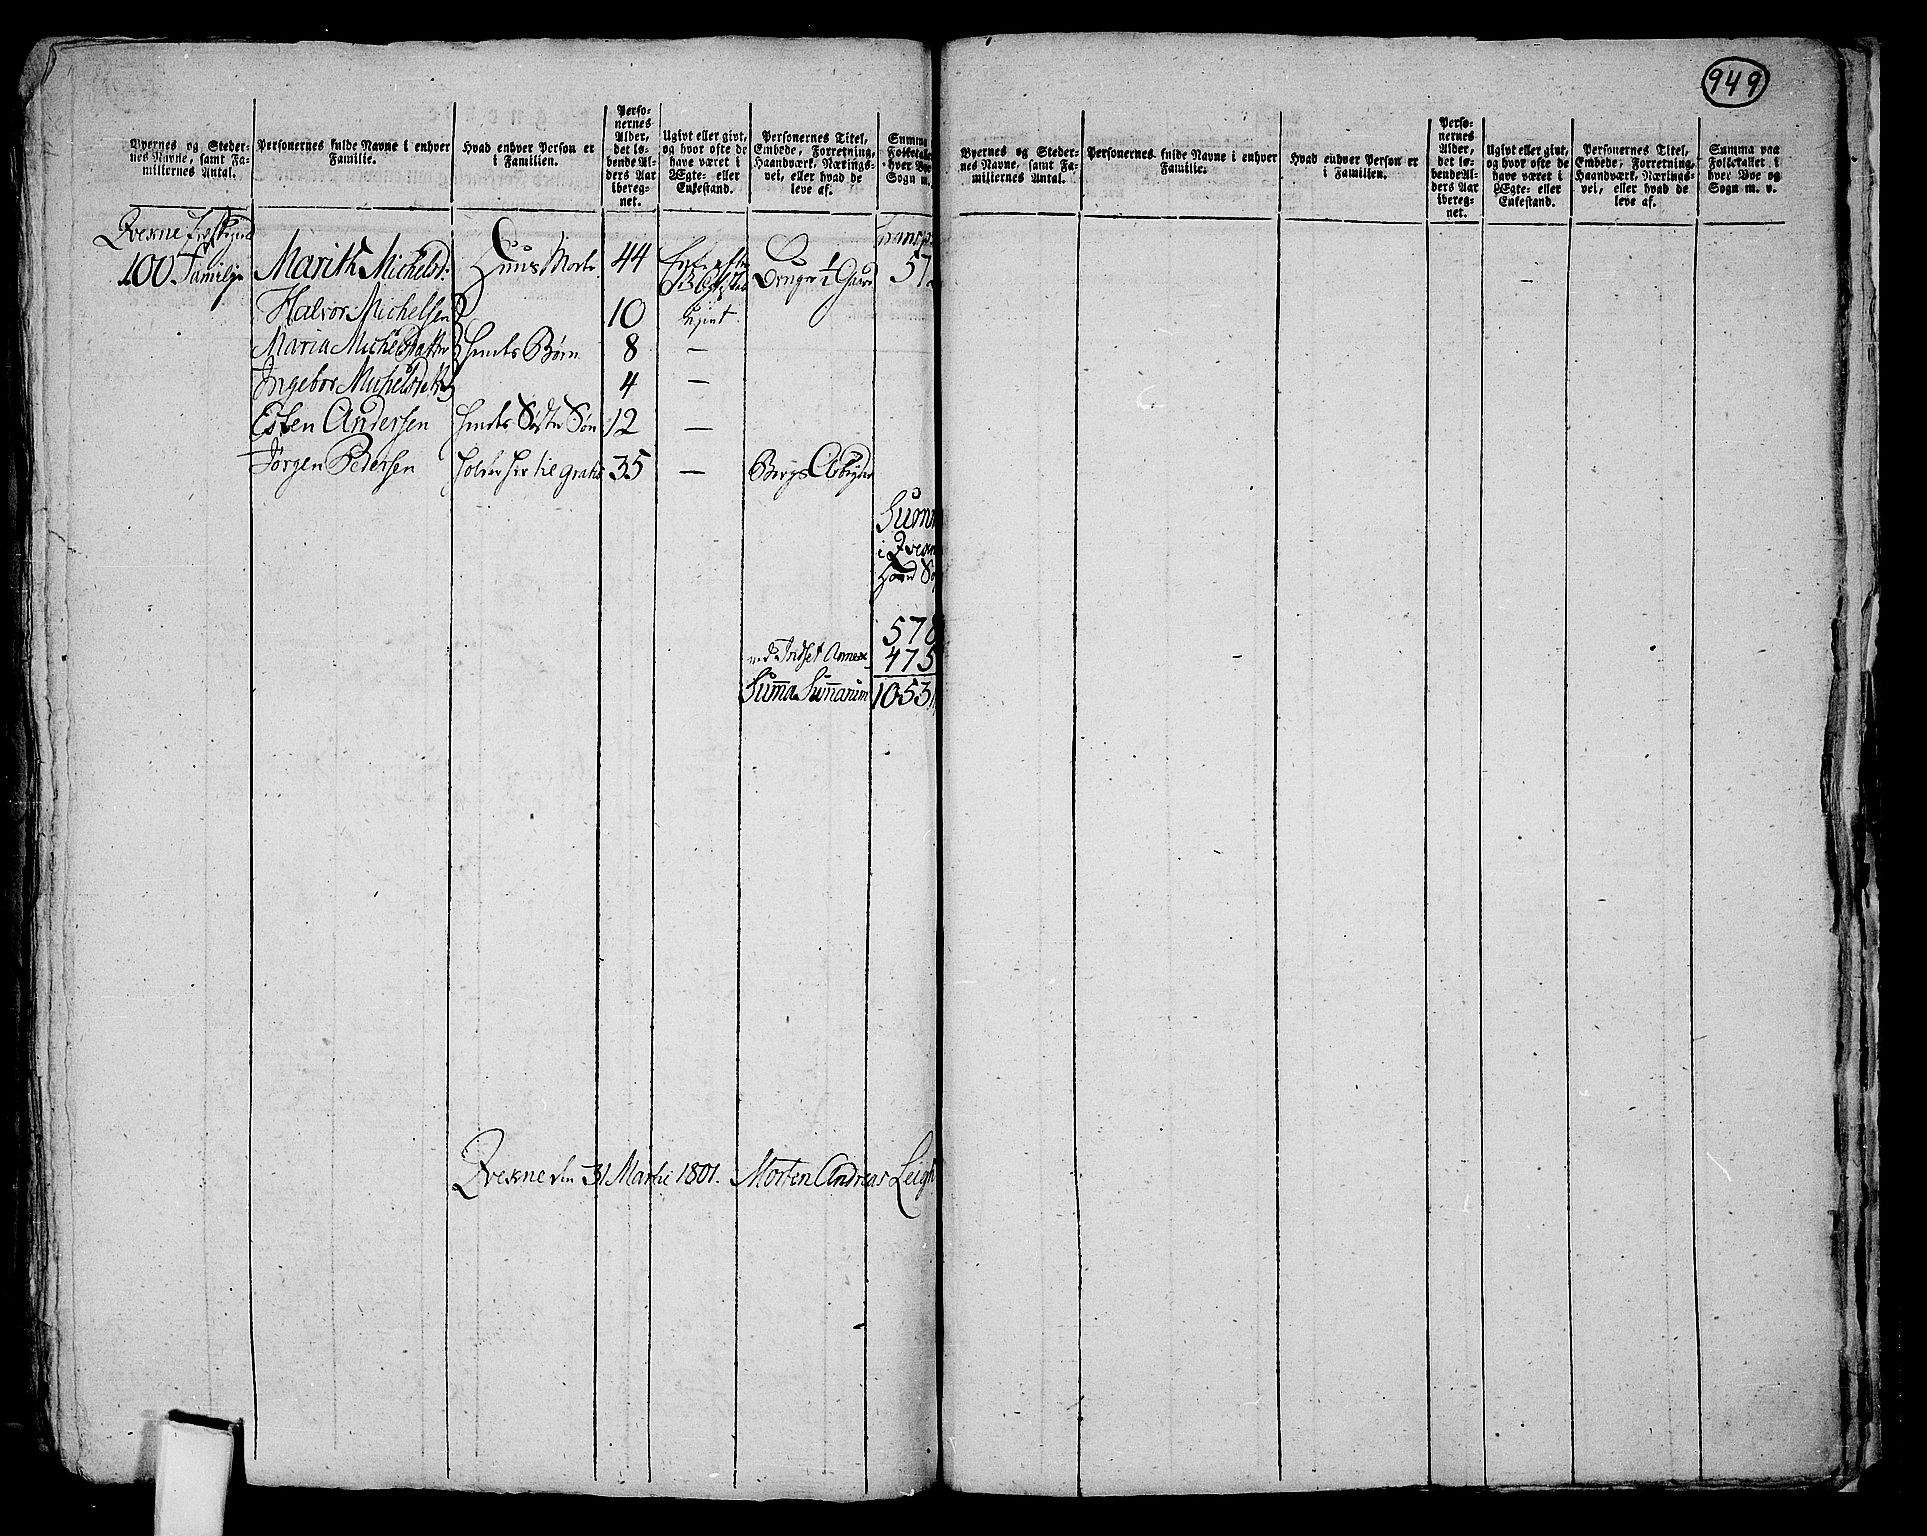 949
Byernes og Steder-
nes Navne, samt Fa-
miliernes Antal.
Personernes fulde Navne i enhver
Familie.
Hvad enhver Person er
i Familien.
Perso-
nernes
Alder,
det lø-
bende Al-
ders Aar
ibereg-
net.
Ugivt eller givt,
og hvor ofte de
have været i
Ægte- eller
Enkestand.
Personernes Titel,
Embede, Forretning,
Haandværk, Nærings-
vei, eller hvad de
leve af.
Summa
Folketalle
hver Bye
Sogn m.
Qvekne
Transp
100 Familie Marith Michelsd: Huus Moder 44 Bruger 1/2 Gaard 572
Halvor Michelsen 10 Ugivt
Maria Michelsdatter hendes Børn 8 —
Ingebor Michelsdatter 4 —
Esten Andersen hendes Søster Søn 12 —
Jørgen Pedersen holder her til gratis 35 — Bergs Arbeyder
Sum
i Qvekn
Hoved So
578
ved Indset Annex 475
Summa Summarum 1053
Qvekne den 31 Martii 1801. Morten Andreas Leigh
Byernes og Steder-
nes Navne, samt Fa-
miliernes Antal.
Personernes fulde Navne i enhver
Familie.
Hvad enhver Person er
i Familien.
Perso-
nernes
Alder,
det lø-
bende Al-
ders Aar
ibereg-
net.
Ugivt eller givt,
og hvor ofte de
have været i
Ægte- eller
Enkestand.
Personernes Titel,
Embede, Forretning,
Haandværk, Nærings-
vei, eller hvad de
leve af.
Summa paa
Folketallet i
hver Bye og
Sogn m. v.